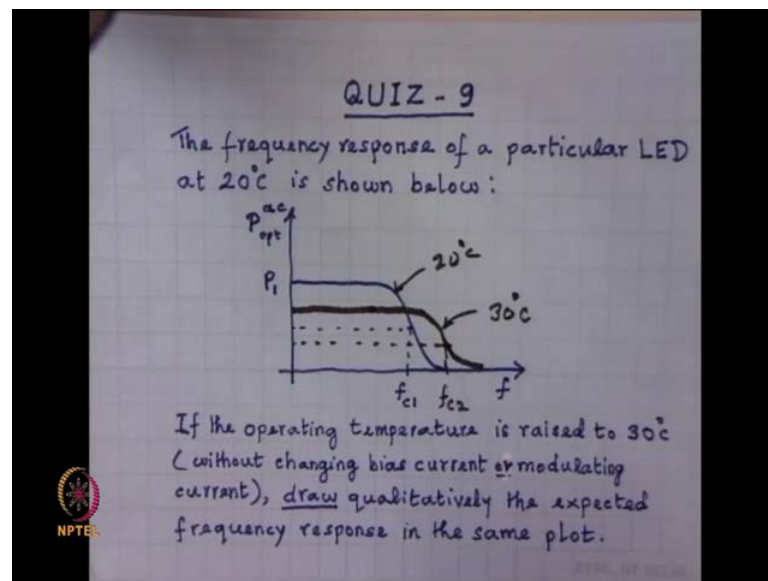 QUIZ - 9
The frequency response of a particular LED
at 20°C is shown below:
P opt ac
P1
20°C
30°C
fc1 fc2 f
If the operating temperature is raised to 30°C
(without changing bias current or modulating
current), draw qualitatively the expected
frequency response in the same plot.
NPTEL